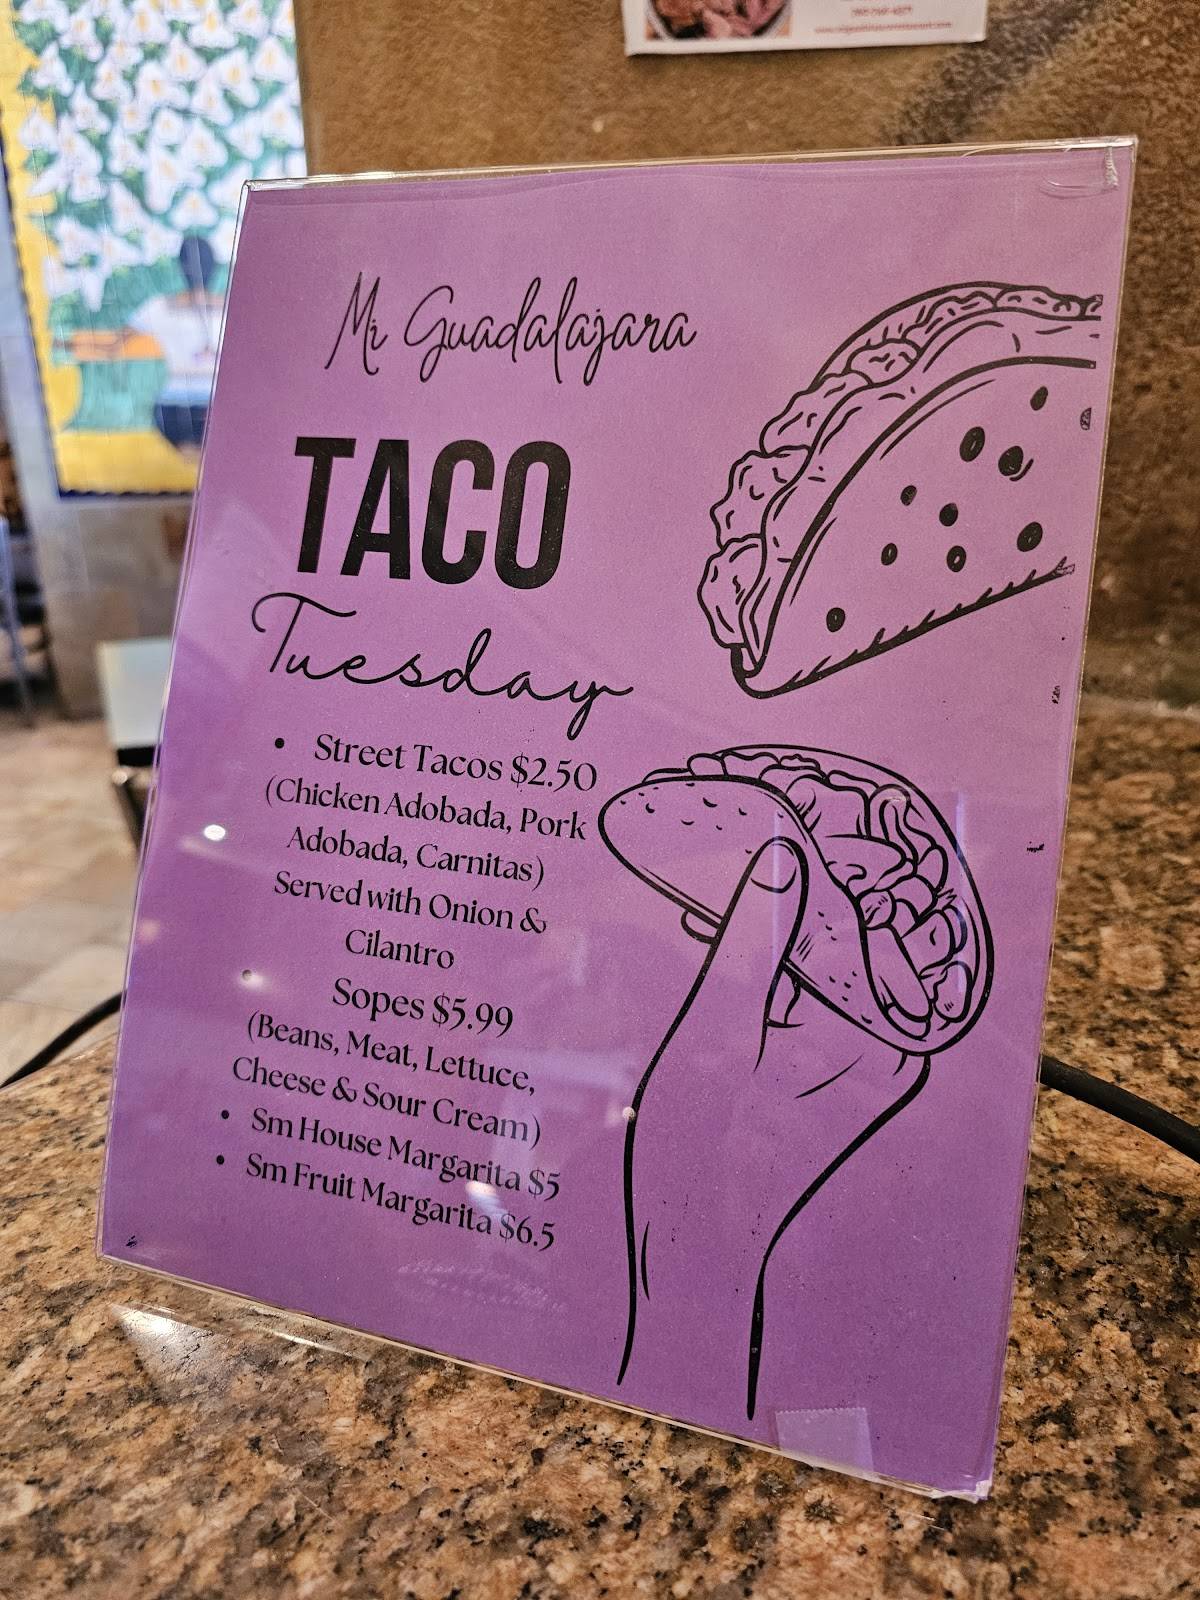 Mi Guadalajara
TACO
Tuesday
• Street Tacos $2.50
(Chicken Adobada, Pork
Adobada, Carnitas)
Served with Onion &
Cilantro
• Sopes $5.99
(Beans, Meat, Lettuce,
Cheese & Sour Cream)
• Sm House Margarita $5
• Sm Fruit Margarita $6.5